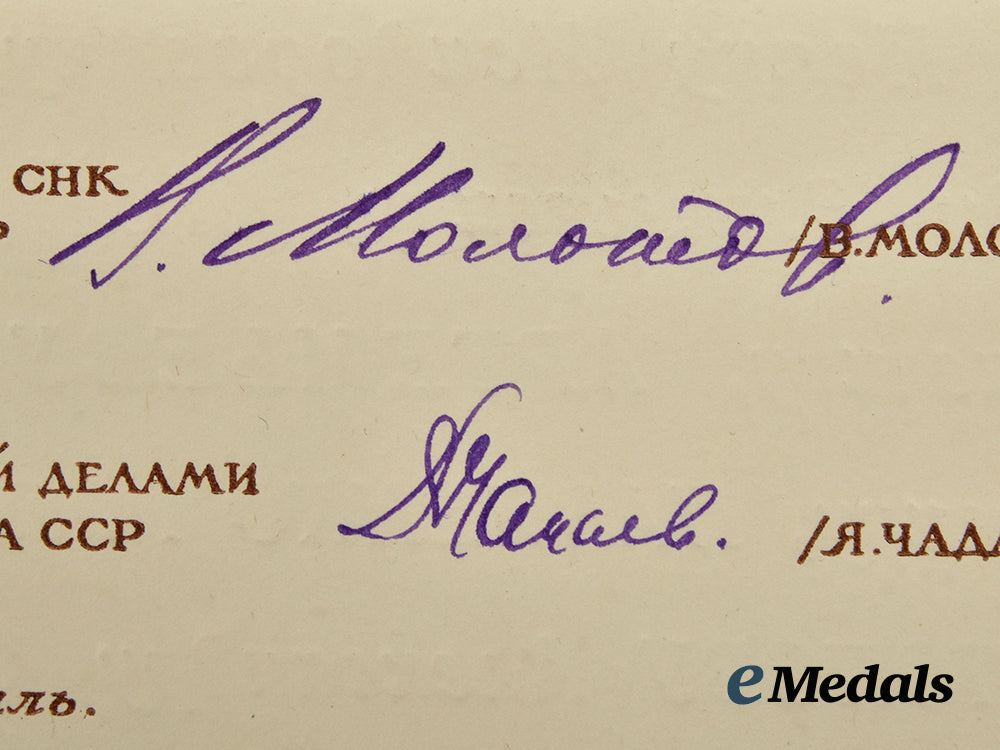 СНК В. Молотов. /В.МОЛО
Р
Й ДЕЛАМИ Я Чадаев. /Я.ЧАДА
А ССР
ль.
eMedals